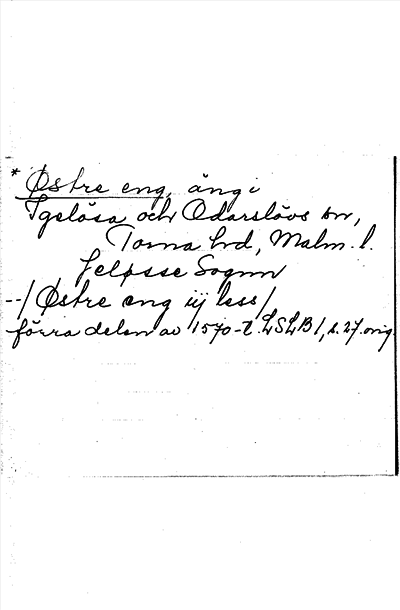 * Østre eng, äng i
Igelösa och Odarslövs snr,
Torna hd, Malm. l.
Jeløsse Sognn
--/ Østre eng iij less/
förra delen av 1570-t. LSLB 1, s. 27. orig.